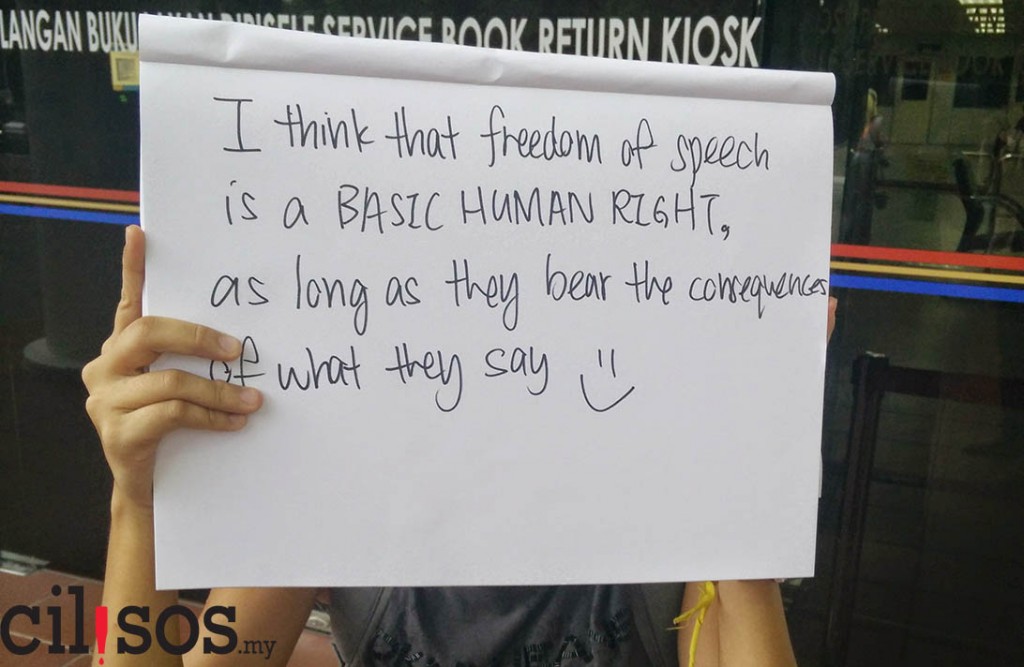 SERVICE BOOK RETURN KIOSK
I think that freedom of speech
is a BASIC HUMAN RIGHT,
as long as they bear the consequences
of what they say
cilisos.my